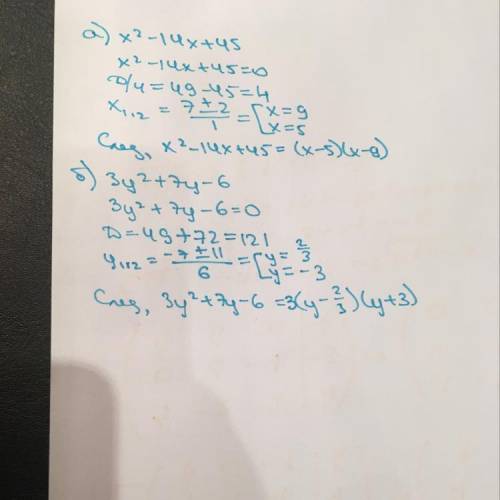 а) x² - 14x + 45
x² - 14x + 45 = 0
D/4 = 49 - 45 = 4
x₁,₂ = (7 ± 2)/1 = [x = 9 x = 5
След, x² - 14x + 45 = (x - 5)(x - 9)
б) 3y² + 7y - 6
3y² + 7y - 6 = 0
D = 49 + 72 = 121
y₁,₂ = (-7 ± 11)/6 = [y = 2/3 y = -3
След, 3y² + 7y - 6 = 3(y - 2/3)(y + 3)